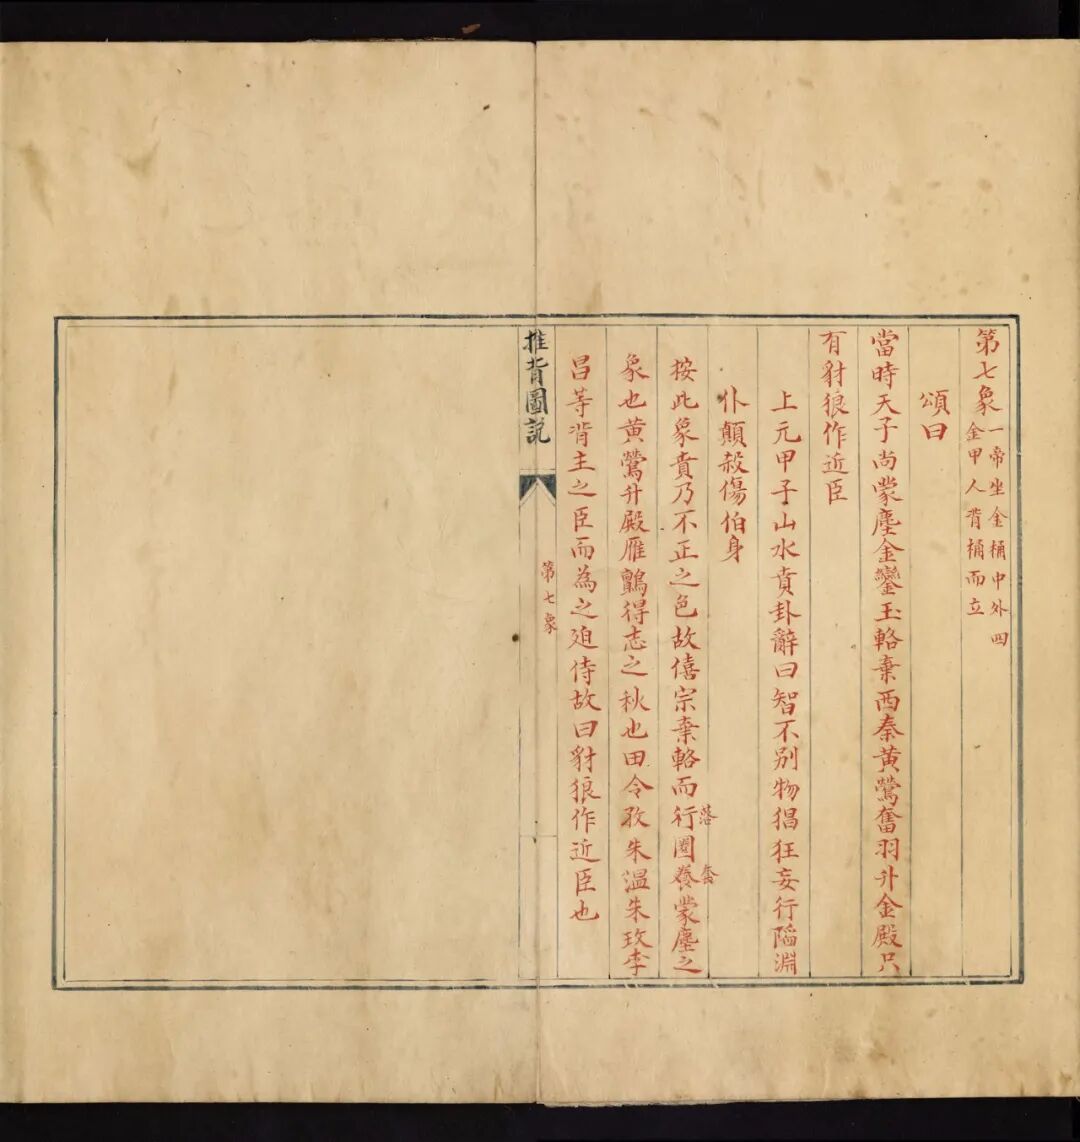 第七象
一帝坐金桶中外四
金甲人背桶而立
頌曰
當時天子尚蒙塵金鑾玉輅棄西秦黄鶯奮羽升金殿只
有豺狼作近臣
上元甲子山水賁卦辭曰智不别物猖狂妄行陷淵
仆顛殺傷伯身
按此象賁乃不正之色故僖宗棄輅而行圈養蒙塵之
落
套
象也黄鶯升殿雁鸇得志之秋也田令孜朱溫朱玫李
昌等背主之臣而為之廹侍故曰豺狼作近臣也
推背圖説
第七象